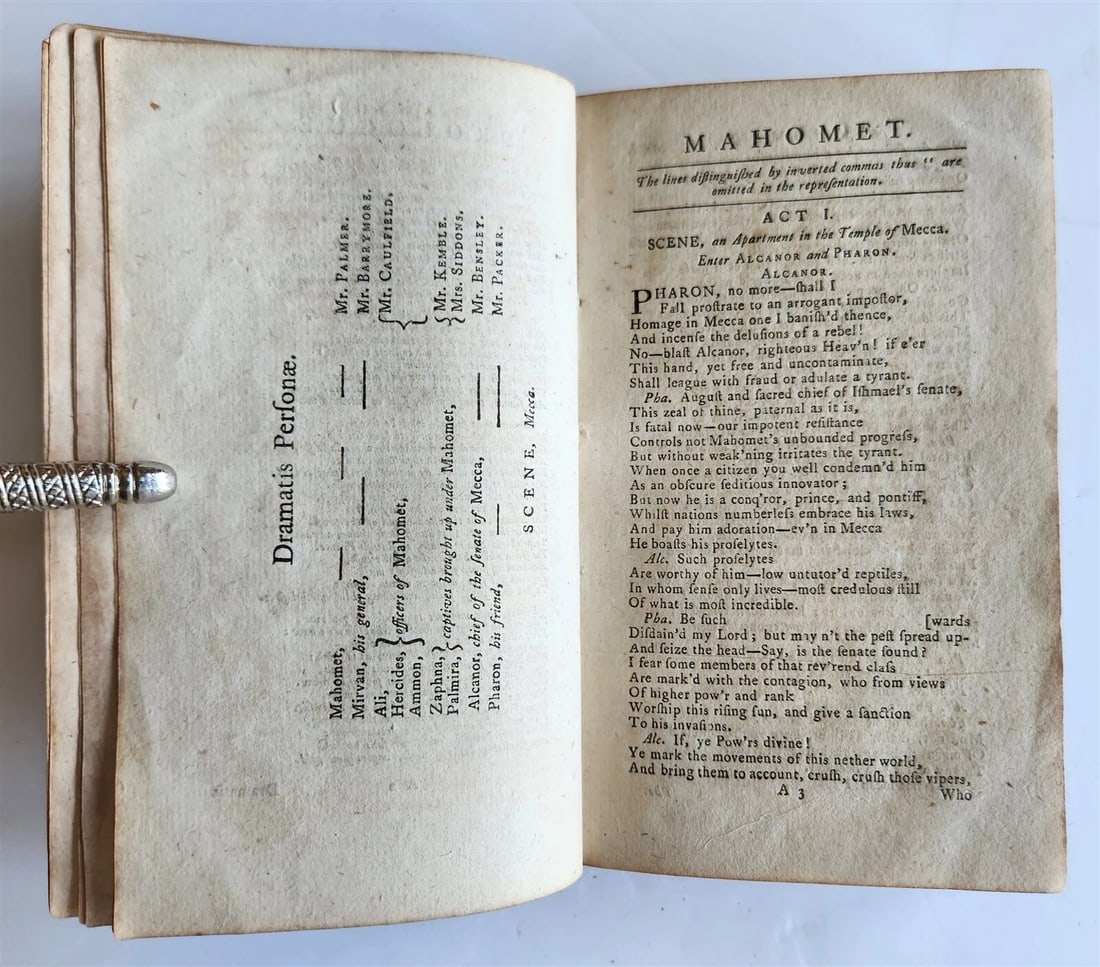 Dramatis Perſonæ.
Mahomet, Mr. PALMER.
Mirvan, his general, Mr. BARRYMORE.
Ali,
Hercides, } officers of Mahomet, { Mr. CAULFIELD.
Ammon,
Zaphna, } captives brought up under Mahomet, { Mr. KEMBLE.
Palmira, Mrs. SIDDONS.
Alcanor, chief of the ſenate of Mecca, Mr. BENSLEY.
Pharon, his friend, Mr. PACKER.
SCENE, Mecca.
MAHOMET.
The lines diſtinguiſhed by inverted commas thus “ are
omitted in the repreſentation.
ACT I.
SCENE, an Apartment in the Temple of Mecca.
Enter ALCANOR and PHARON.
ALCANOR.
PHARON, no more—ſhall I
Fall proſtrate to an arrogant impoſtor,
Homage in Mecca one I baniſh'd thence,
And incenſe the deluſions of a rebel!
No—blaſt Alcanor, righteous Heav'n! if e'er
This hand, yet free and uncontaminate,
Shall league with fraud or adulate a tyrant.
Pha. Auguſt and ſacred chief of Iſhmael's ſenate,
This zeal of thine, paternal as it is,
Is fatal now—our impotent reſiſtance
Controls not Mahomet's unbounded progreſs,
But without weak'ning irritates the tyrant.
When once a citizen you well condemn'd him
As an obſcure ſeditious innovator;
But now he is a conq'ror, prince, and pontiff,
Whilſt nations numberleſs embrace his laws,
And pay him adoration—ev'n in Mecca
He boaſts his proſelytes.
Alc. Such proſelytes
Are worthy of him—low untutor'd reptiles,
In whom ſenſe only lives—moſt credulous ſtill
Of what is moſt incredible.
Pha. Be ſuch [wards
Diſdain'd my Lord; but may n't the peſt ſpread up-
And ſeize the head—Say, is the ſenate ſound?
I fear ſome members of that rev'rend claſs
Are mark'd with the contagion, who from views
Of higher pow'r and rank
Worſhip this riſing ſun, and give a ſanction
To his invaſions.
Alc. If, ye Pow'rs divine!
Ye mark the movements of this nether world,
And bring them to account, cruſh, cruſh thoſe vipers,
A 3 Who